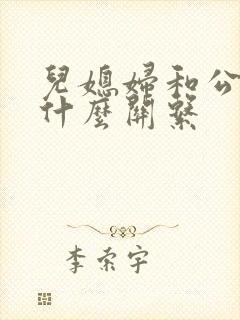 兒媳婦和公
什麼關繫
李索宇